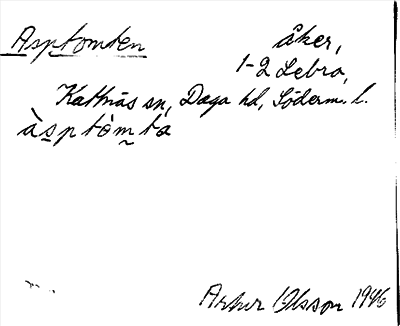 Asptomten åker,
1-2 Lebro,
Kattnäs sn, Daga hd, Söderm. l.
àsptòm̰ta
Artur Olsson 1946